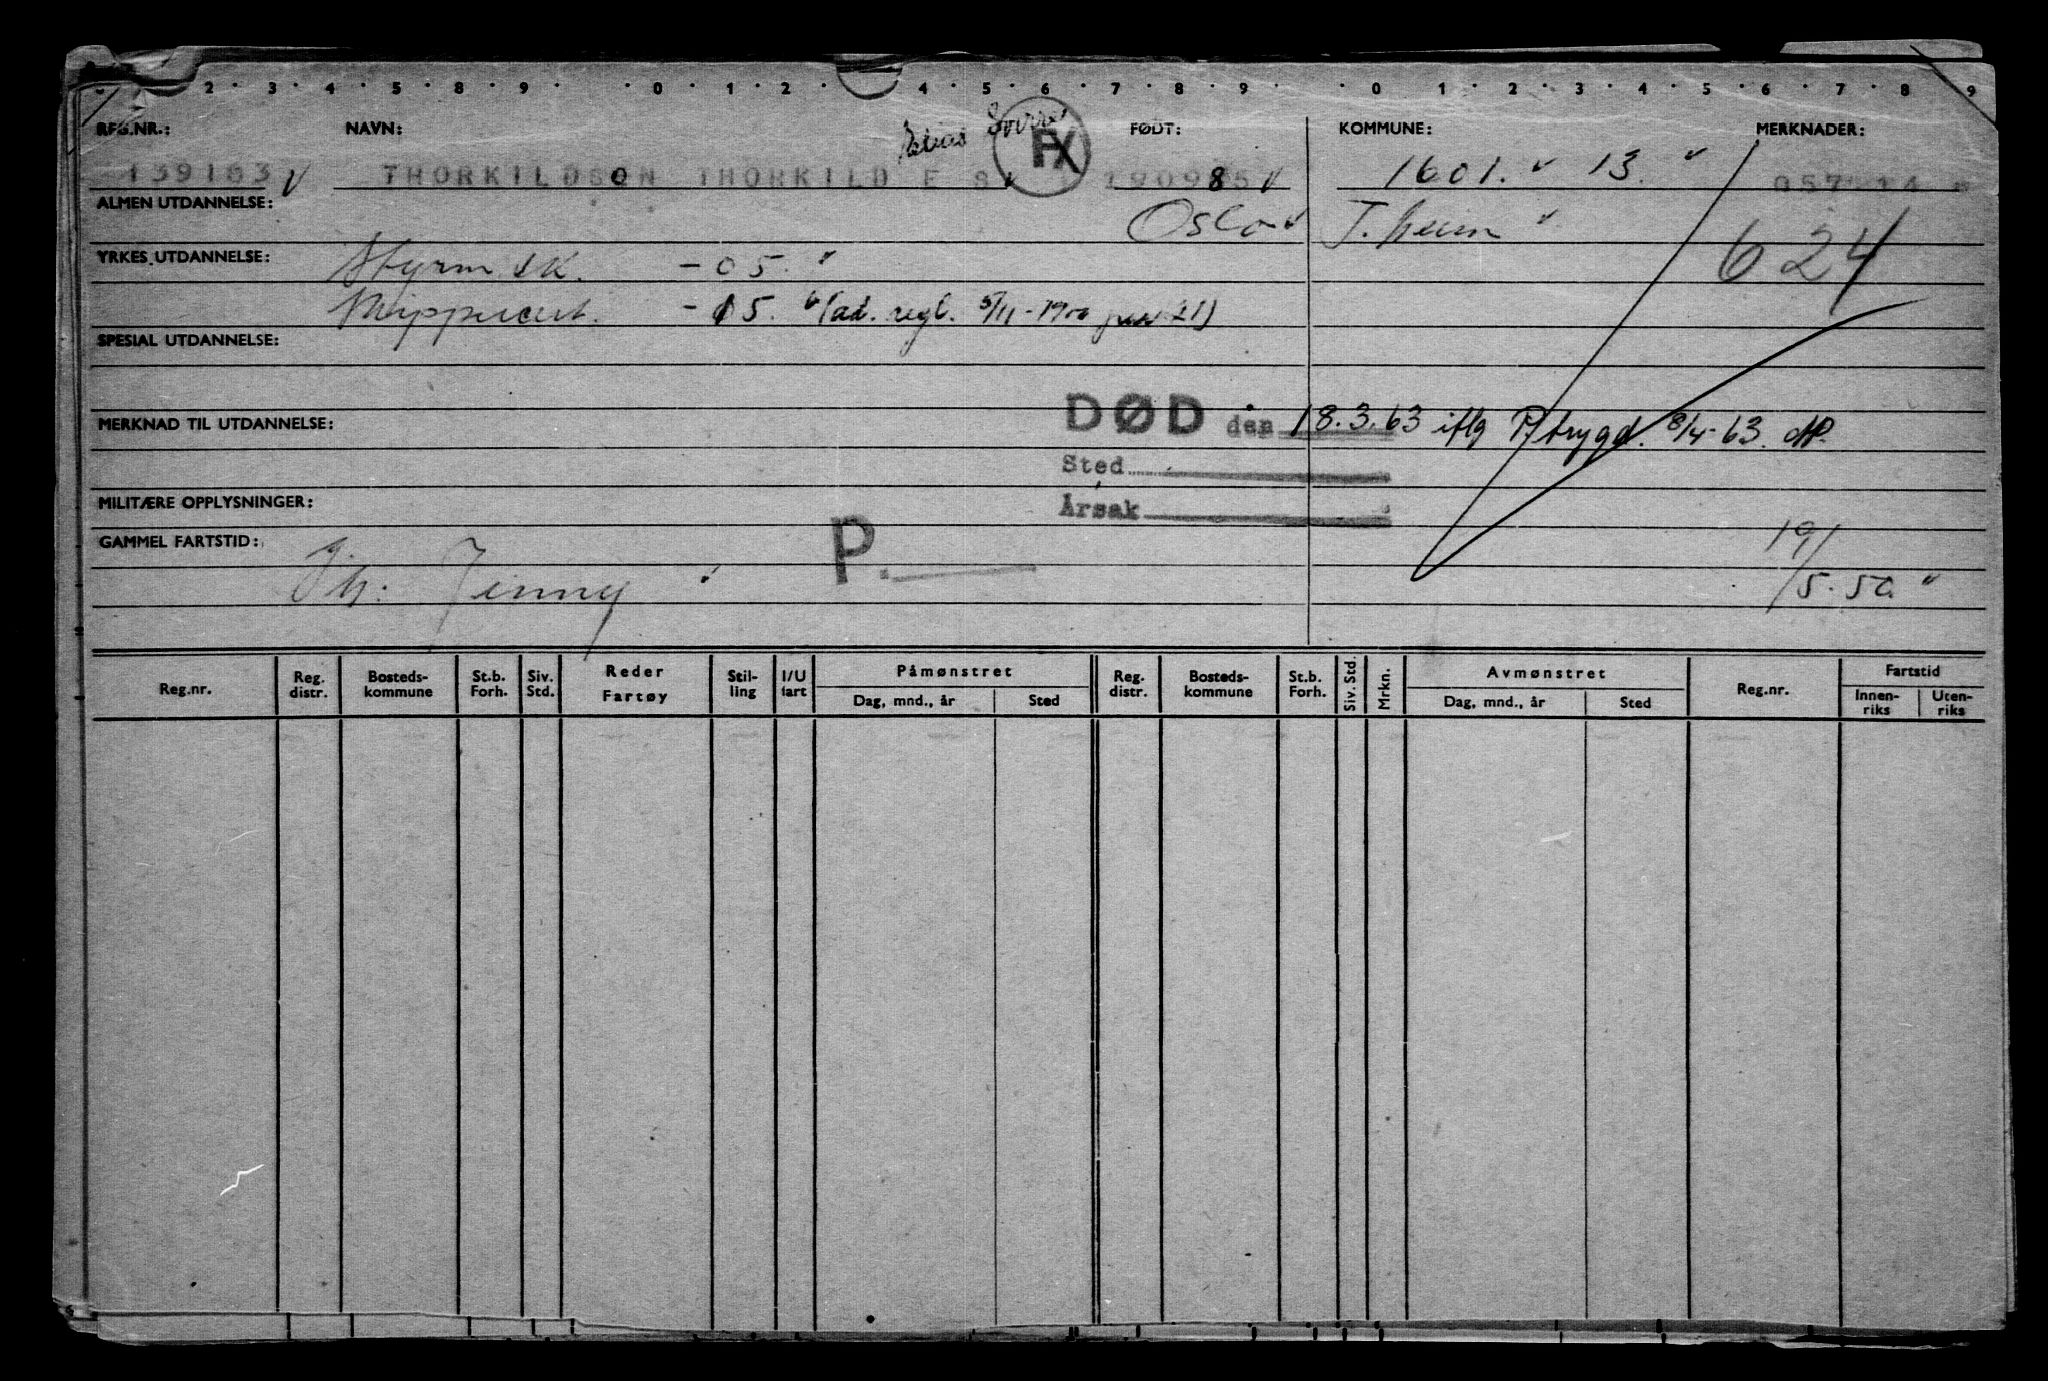 2 3 4 5 8 9 0 1 2 4 5 6 7 8 9 0 1 2 3 4 5 6 7 8 9
REG.NR.: NAVN: Sverre FX FØDT: KOMMUNE: MERKNADER:
139183 THORKILDSEN THORKILD E S 190985 1601. 13. 057
ALMEN UTDANNELSE: Oslo T.heim 624
YRKES UTDANNELSE: Styrm sk. - 05.
- 15. (ad. regl. 5/11-1900 21)
SPESIAL UTDANNELSE:
MERKNAD TIL UTDANNELSE: DØD den 18.3.63 iflg P/trygd. 8/4-63.
Sted
MILITÆRE OPPLYSNINGER: Årsak
GAMMEL FARTSTID: P. 19/
Jenny 5.50.
Reg.nr. Reg. distr. Bosteds-kommune St.b. Forh. Siv. Std. Reder Fartøy Stil-ling I/U fart Påmønstret Dag, mnd., år Sted Reg. distr. Bosteds-kommune St.b. Forh. Siv. Std. Mrkn. Avmønstret Dag, mnd., år Sted Reg.nr. Fartstid Innen-riks Uten-riks